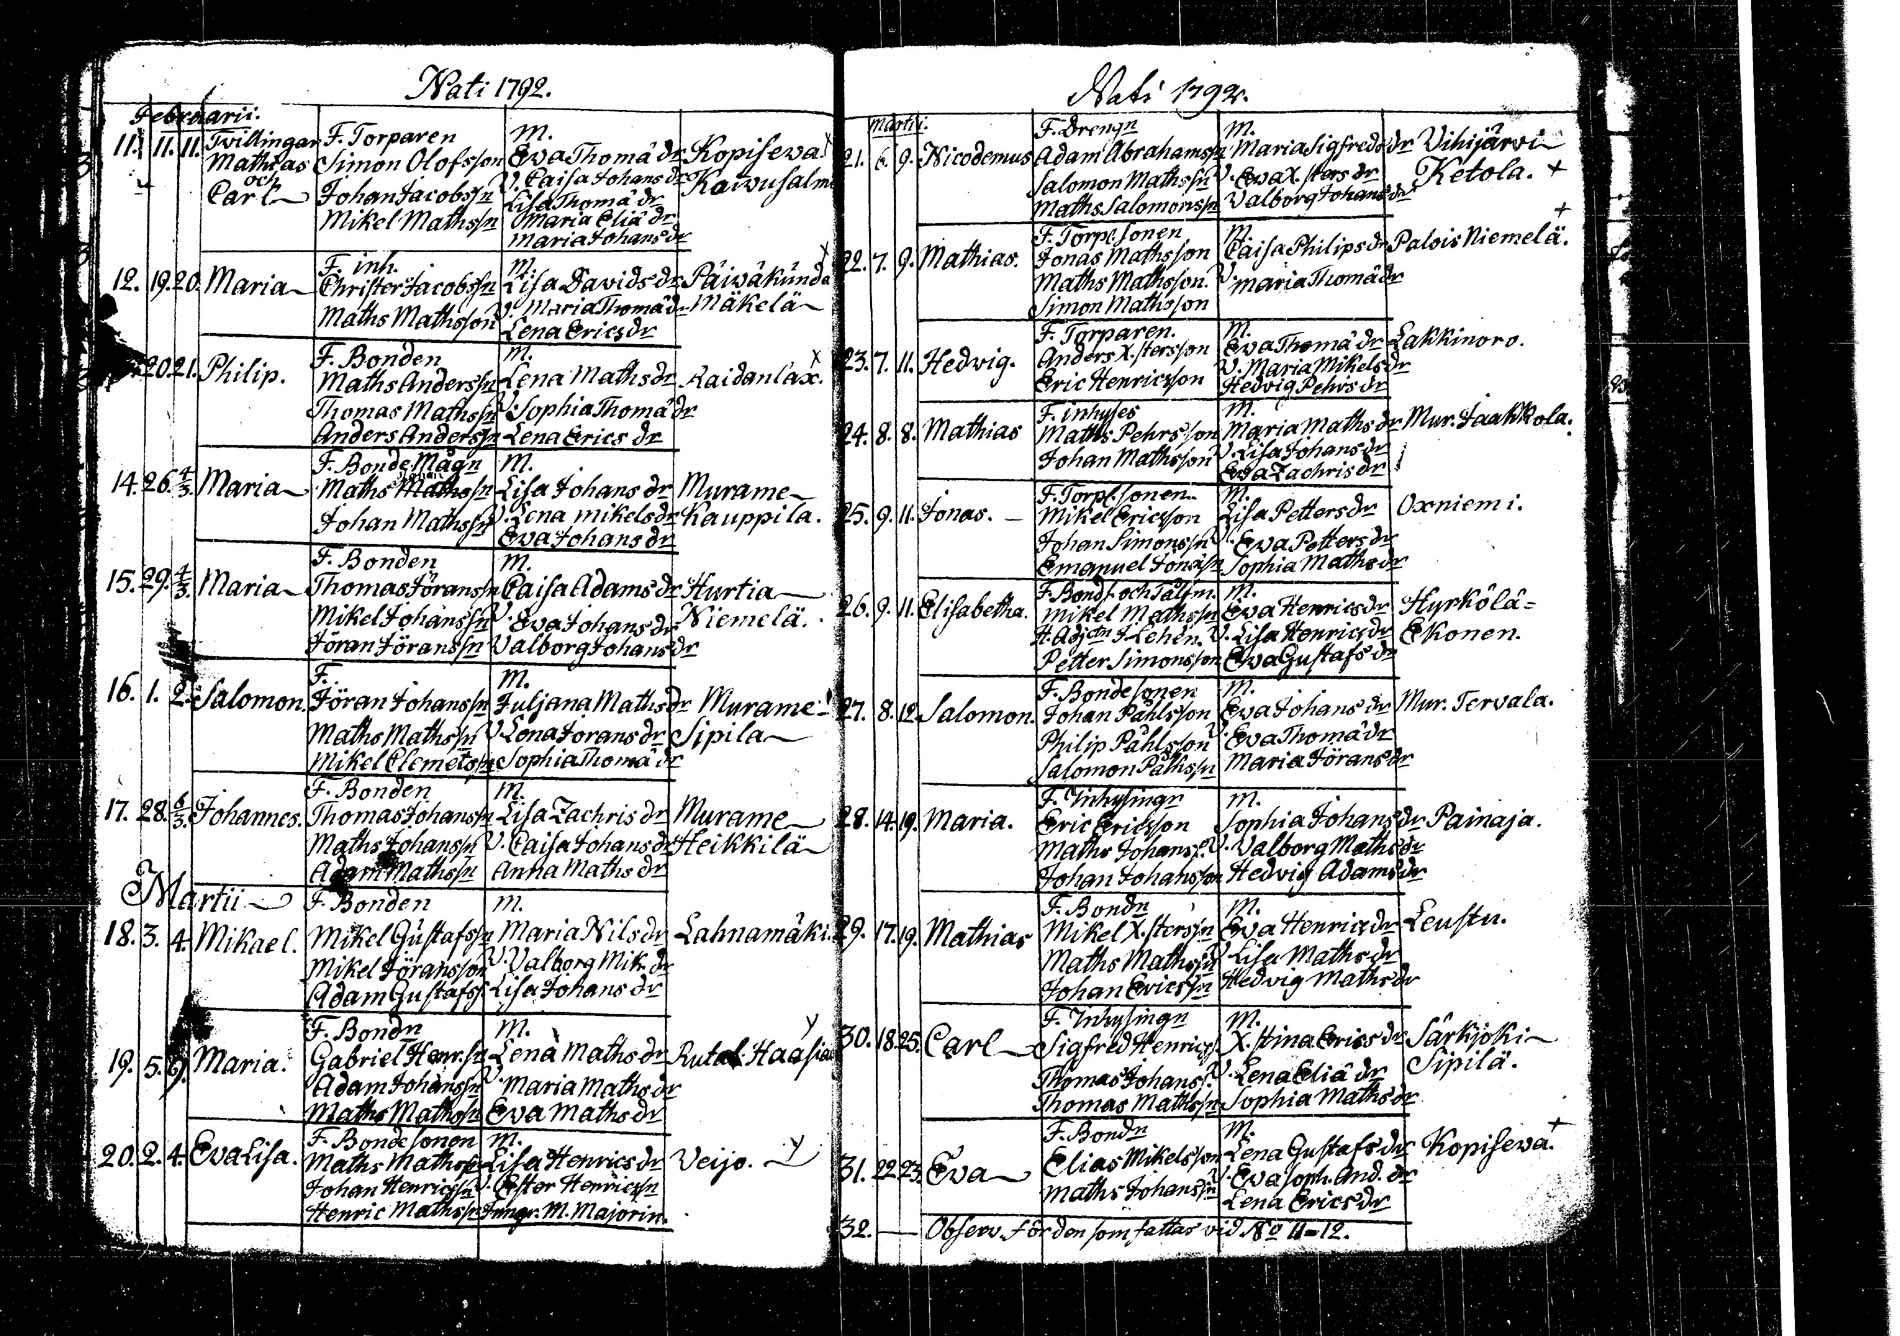 Nati 1792.
Februarii.
11. 11. 11. Tvillingar F. Torparen M.
Mathias Simon Olofsson Eva Thomæ dr Kopisewa
och V. Caisa Johans dr Kaivusalm
Carl Johan Jacobssn Lisa Thomä dr
Mikel Mathssn Maria Eliä dr
Maria Johans dr
F. inh. M.
12. 19. 20. Maria Christer Jacobssn Lisa Davids dr Päiväkunda
Maths Mathsson V. Maria Thomä dr Mäkelä
Lena Erics dr
F. Bonden M.
20. 21. Philip. Maths Anderssn Lena Maths dr Raidanlax.
Thomas Mathssn V. Sophia Thomä dr
Anders Anderssn Lena Erics dr
F. Bonde Mågn M.
14. 26. 4/3. Maria Maths Mathssn Lisa Johans dr Murame
Johan Mathssn V. Lena Mikels dr Kauppila.
Eva Johans dr
F. Bonden M.
15. 29. 4/3. Maria Thomas Göranssn Caisa Adams dr Hurtia
Mikel Johanssn V. Eva Johans dr Niemelä.
Göran Göranssn Valborg Johans dr
F. M.
16. 1. 2. Salomon. Göran Johanssn Juljana Maths dr Murame
Maths Mathssn V. Lena Görans dr Sipila
Mikel Clemetssn Sophia Thomä dr
F. Bonden M.
17. 28. 6/3. Johannes. Thomas Johanssn Lisa Zachris dr Murame
Maths Johanssn V. Caisa Johans dr Heikkilä
Adam Mathssn Anna Maths dr
Martii F. Bonden M.
18. 3. 4. Mikael. Mikel Gustafssn Maria Nils dr Lahnamäki.
Mikel Göransson V. Valborg Mik. dr
Adam Gustafss. Lisa Johans dr
F. Bondn M.
19. 5. Maria. Gabriel Henr.sn Lena Maths dr Rutal Haasia
Adam Johanssn V. Maria Maths dr
Maths Mathssn Eva Maths dr
F. Bondesonen M.
20. 2. 4. Eva Lisa. Maths Mathssn Lisa Henrics dr Veijo.
Johan Henricssn V. Ester Henricssn
Henric Mathssn Jungr. M. Majorin.
Nati 1792.
Martii. F. Drengn M.
21. 6. 9. Nicodemus Adam Abrahamssn Maria Sigfreds dr Vihijärvi
Salomon Mathssn V. Eva X.sters dr Ketola. +
Maths Salomonssn Valborg Johans dr
F. Torp. sonen M. +
22. 7. 9. Mathias. Jonas Mathsson Caisa Philips dr Palois Niemelä.
Maths Mathsson. V. Maria Thomä dr
Simon Mathsson
F. Torparen. M.
23. 7. 11. Hedvig. Anders X.stersson Eva Thomä dr Lakkinoro.
Eric Henricsson V. Maria Mikels dr
Hedvig Pehrs dr
F. inhyses M.
24. 8. 8. Mathias Maths Pehrsson Maria Maths dr Mur. Jaakkola.
Johan Mathsson V. Lisa Johans dr
Eva Zachris dr
F. Torp. sonen. M.
25. 9. 11. Jonas. Mikel Ericsson Lisa Petters dr Oxniemi.
Johan Simonssn V. Eva Petters dr
Emanuel Jonässn Sophia Maths dr
F. Bond. och Tålsm. M.
26. 9. 11. Elisabetha. Mikel Mathssn Eva Henrics dr Hyrkölä=
H. Adjctn J. Lehén. V. Lisa Henrics dr Ekonen.
Petter Simonsson Eva Gustafs dr
F. Bondesonen M.
27. 8. 12. Salomon. Johan Påhlsson Eva Johans dr Mur. Tervala.
Philip Påhlsson V. Eva Thomä dr
Salomon Påhlssn Maria Görans dr
F. Inhysingn M.
28. 14. 19. Maria. Eric Ericsson Sophia Johans dr Painaja.
Maths Johanss. V. Valborg Maths dr
Johan Johansson Hedvig Adams dr
F. Bondn M.
29. 17. 19. Mathias Mikel X.sterssn Eva Henrics dr Leustu.
Maths Mathssn V. Lisa Maths dr
Johan Ericssn Hedvig Maths dr
F. Inhysingn M.
30. 18. 25. Carl Sigfred Henricss. X.stina Erics dr Särkjoki
Thomas Johanss. V. Lena Eliä dr Sipilä.
Thomas Mathssn Sophia Maths dr
F. Bondn M. +
31. 22. 23. Eva Elias Mikelsson Lena Gustafs dr Kopisewa.
Maths Johanssn V. Eva Soph. And. dr
Lena Erics dr
32. Observ. för den som fattas vid No 11=12.